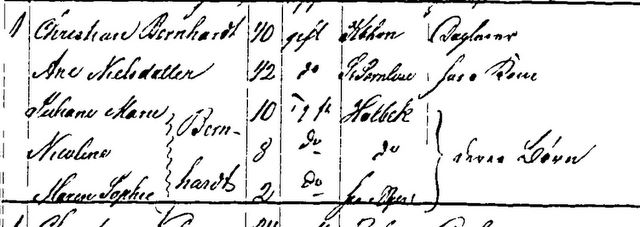 1 Christian Bernhardt 40 gift Kbhvn Dagleier
Ane Nielsdatter 42 do hans Kone
Juliane Marie 10 ugift Holbek
Bern-
Nicoline 8 do do deres Børn
hardt
Maren Sophie 2 do